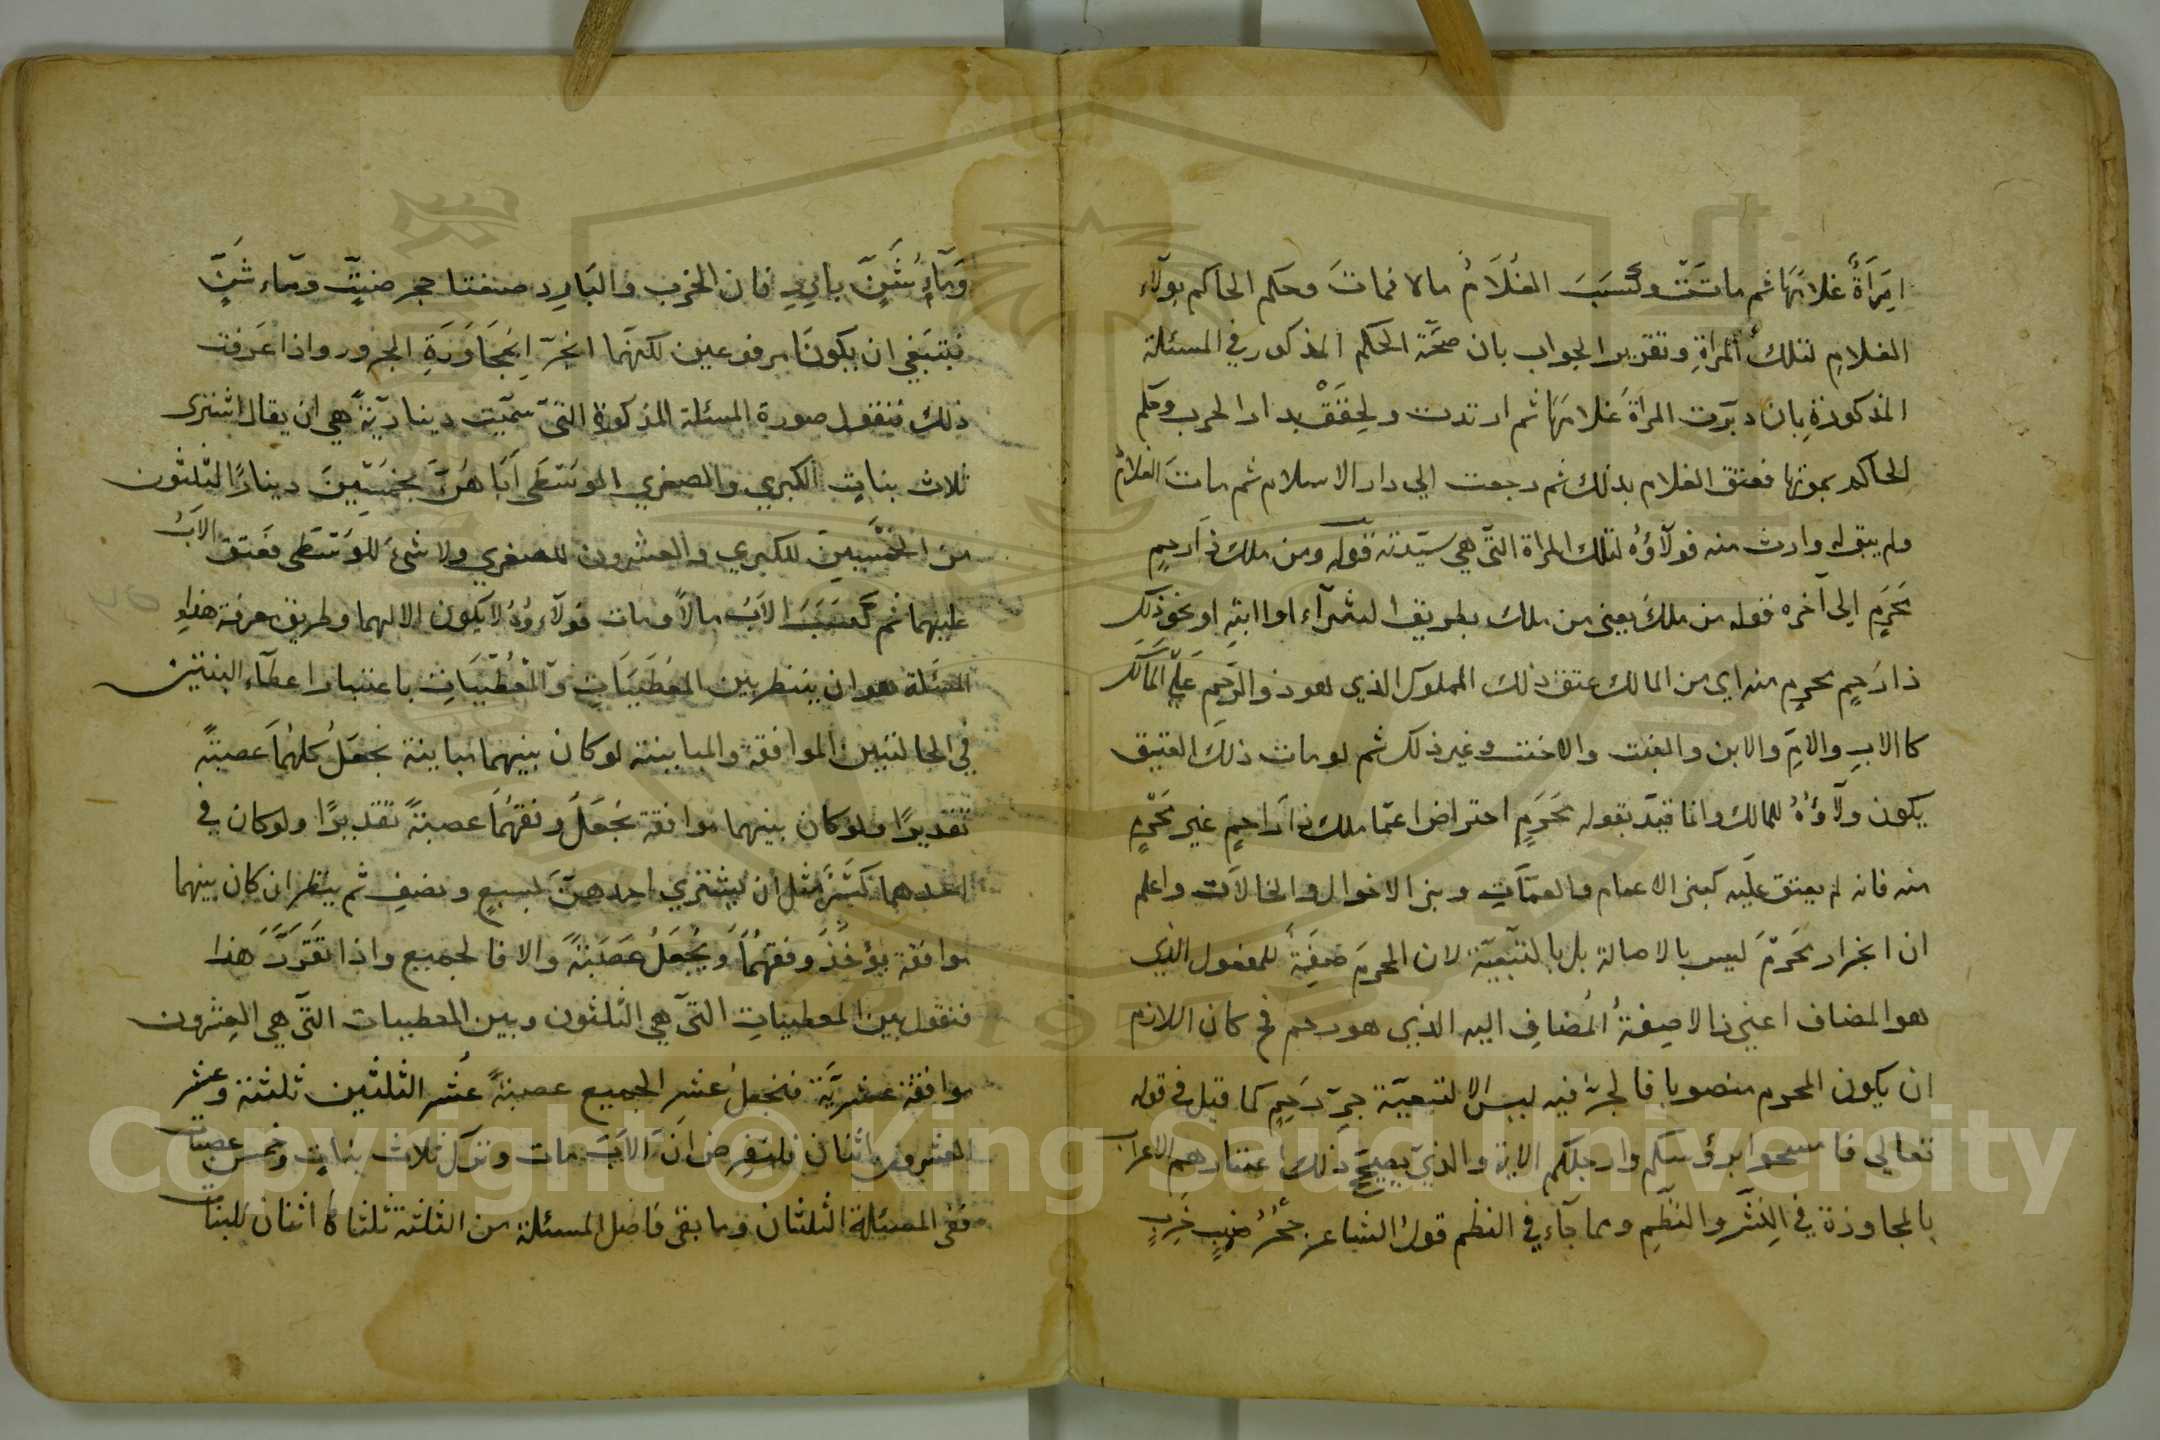 امرأة غلامها ثم ماتت وكسب الغلام مالا فمات وحكم الحاكم بولاء
الغلام لتلك المرأة وتقرير الجواب بان صحة الحكم المذكور في المسئلة
المذكورة بان دبرت المرأة غلامها ثم ارتدت ولحقت بدار الحرب وحكم
الحاكم بموتها فعتق الغلام بذلك ثم رجعت الي دار الاسلام ثم مات الغلام
ولم يبق له وارث منه فولاؤه لتلك المراة التي هي سيدته قوله ومن ملك ذا رحم
محرم الي آخره فقوله من ملك يعني من ملك بطريق الشرآء او الهبة او نحو ذلك
ذا رحم محرم منه اي من المالك عتق ذلك المملوك الذي هو ذو الرحم علي المالك
كالاب والام والابن والبنت والاخت وغير ذلك ثم لو مات ذلك العتيق
يكون ولاؤه للمالك وانما قيد بقوله محرم احترازا عما ملك ذا رحم غير محرم
منه فانه لم يعتق عليه كبني الاعمام والعمات وبني الاخوال والخالات واعلم
ان انجرار محرم ليس بالاصالة بل بالتبعية لان المحرم صفة للمفعول الذي
هو المضاف اعني ذا لا صفة المضاف اليه الذي هو رحم فح كان اللازم
ان يكون المحرم منصوبا فالجر فيه ليس الا لتبعية جر رحم كما قيل في قوله
تعالي فامسحوا برؤسكم وارجلكم الاية والذي يصحح ذلك اعتبارهم الاعراب
بالمجاورة في النثر والنظم ومما جآء في النظم قول الشاعر جحر ضب خرب
ومآء شن بارد فان الخرب والبارد صفتا جحر ضب ومآء شن
فينبغي ان يكونا مرفوعين لكنهما انجرا لمجاورة المجرور واذا عرفت
ذلك فنقول صورة المسئلة المذكورة التي سميت دينارية هي ان يقال اشتري
ثلاث بنات الكبري والصغري الوسطي اباهن بخمسين دينارا الثلثون
من الخمسين للكبري والعشرون للصغري ولا شئ للوسطي فعتق الاب
عليهما ثم كسب الاب مالا ومات فولاؤه لا يكون الا لهما وطريق معرفة هذه
المسئلة هو ان ينظر بين المعطيات والمعطيات باعتبار اعطآء البنتين
في الحالتين الموافقة والمباينة لو كان بينهما مباينة نجعل كلهما عصبة
تقديرا ولو كان بينهما موافقة نجعل وفقهما عصبة تقديرا ولو كان في
احدهما كسر مثل ان يشتري احدهن بسبع ونصف ثم ينظر ان كان بينهما
موافقة يؤخذ وفقهما ويجعل عصبة والا فالجميع واذا تقرر هذا
فنقول بين المعطيات التي هي الثلثون وبين المعطيات التي هي العشرون
موافقة عشرية فنجعل عشر الجميع عصبة عشر الثلثين ثلثة وعشر
العشرون اثنان فلنفرض ان الاب مات وترك ثلاث بنات وخمس عصبات
ففي المسئلة الثلثان وما بقي فاصل المسئلة من الثلثة ثلثاه اثنان للبنات
Copyright © King Saud University